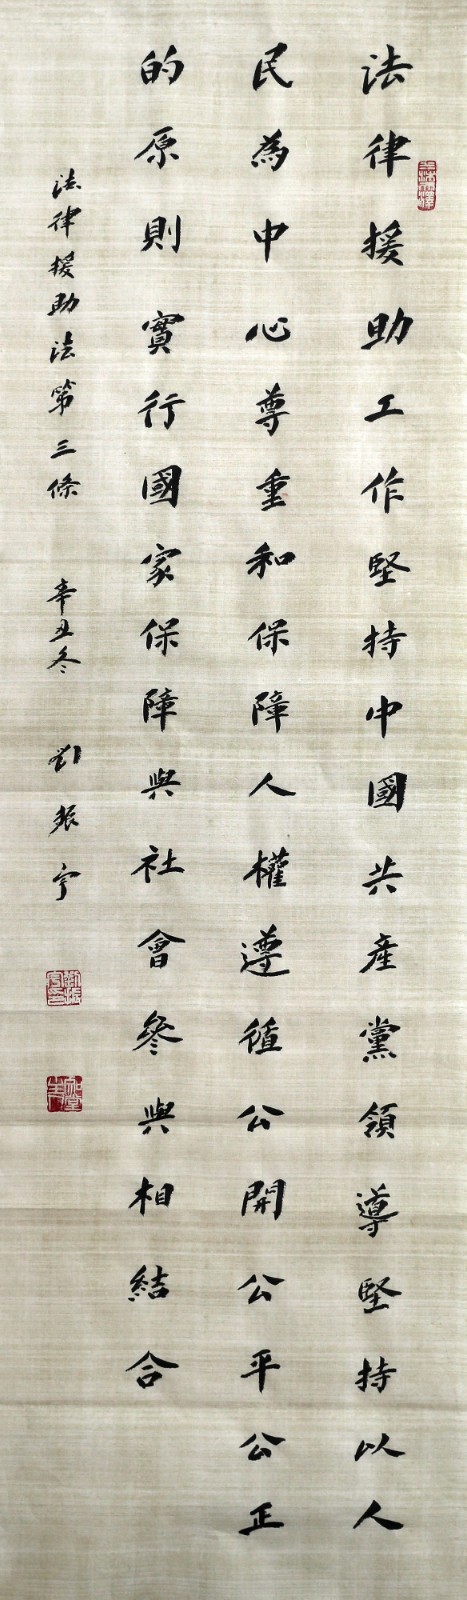 法律援助工作堅持中國共產黨領導堅持以人
民為中心尊重和保障人權遵循公開公平公正
的原則實行國家保障與社會參與相結合
法律援助法第三條 辛丑冬 劉振宇